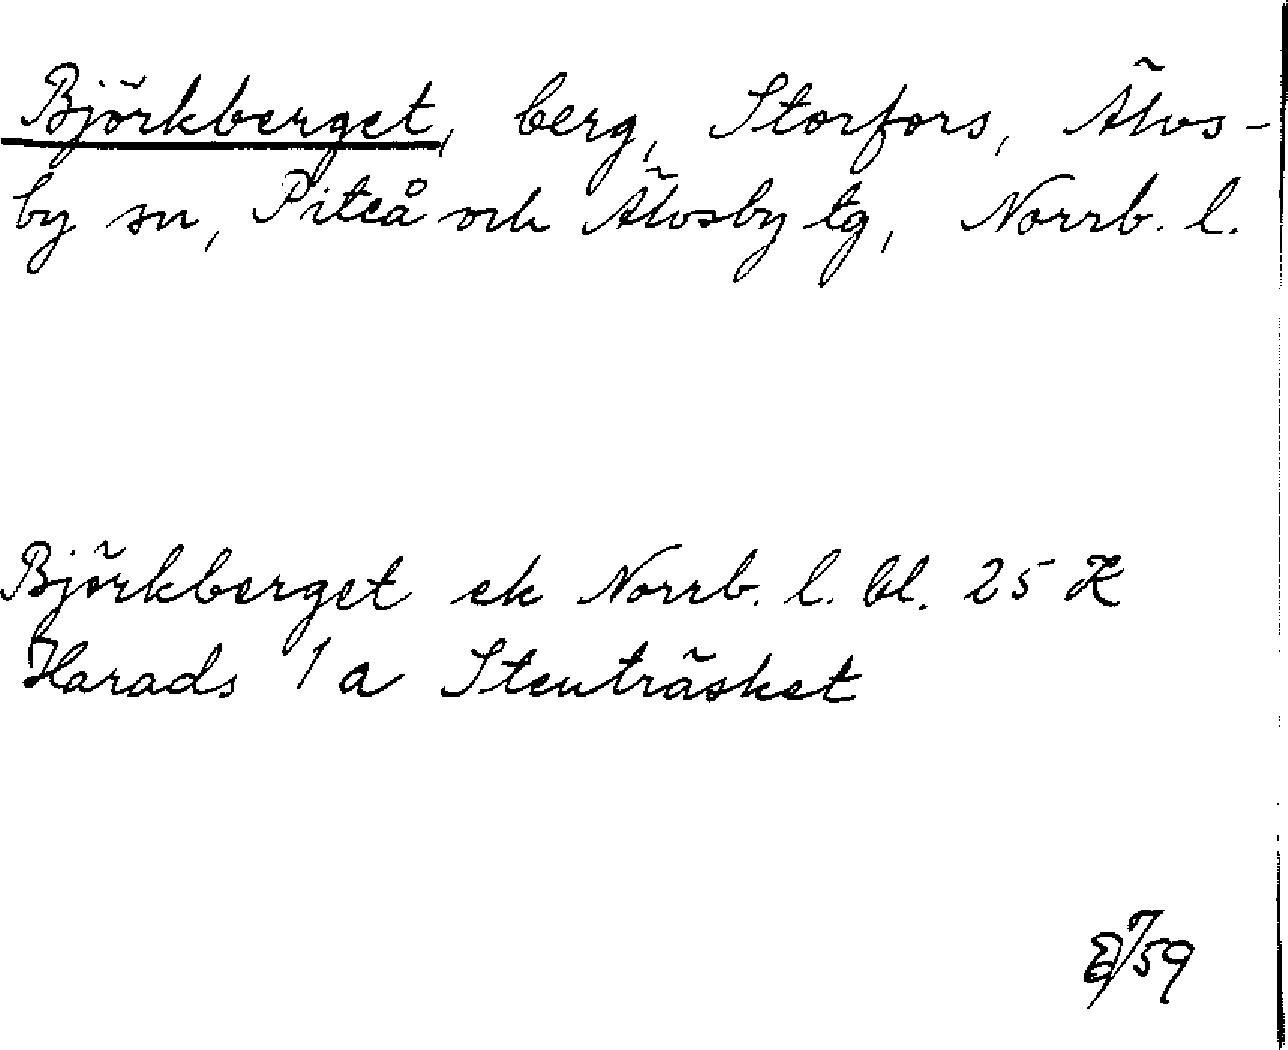 Björkberget, berg, Storfors, Älvs-
by sn, Piteå och Älvsby tg, Norrb. l.
Björkberget ek Norrb. l. bl. 25 K
Harads 1a Stenträsket